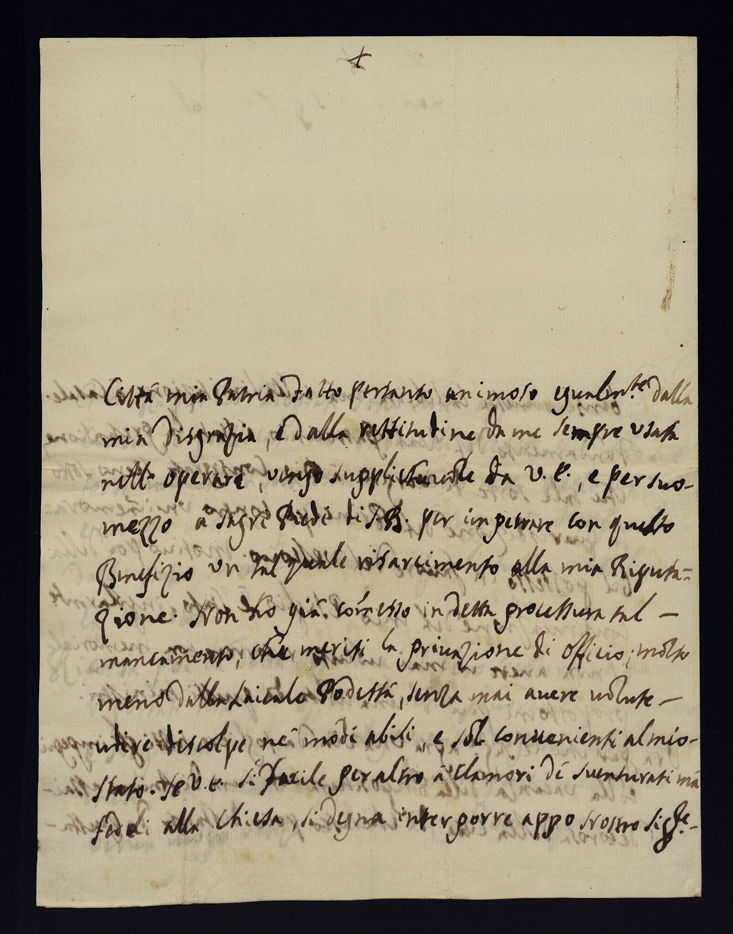 +
Città mia Patria. Fatto pertanto animoso egualm.te dalla
mia disgrazia, e dalla rettitudine da me sempre usata
nell' operare, vengo supplichevole da V. E., e per suo-
mezzo a sagri Piedi di S. B. per impetrare con questo
Benefizio un tal quale risarcimento alla mia Riputa=
zione. Non ho già com̄esso in detta processura tal —
mancamento, che meriti la privazione di officio, molto
meno dalla Laicale Podestà, senza mai avere volute —
udire discolpe ne' modi abili, e sol convenienti al mio-
stato. Se V. E. sì facile per altro a' Clamori de' sventurati mà
fedeli alla Chiesa, si degna interporre appo Nostro Sig.re-